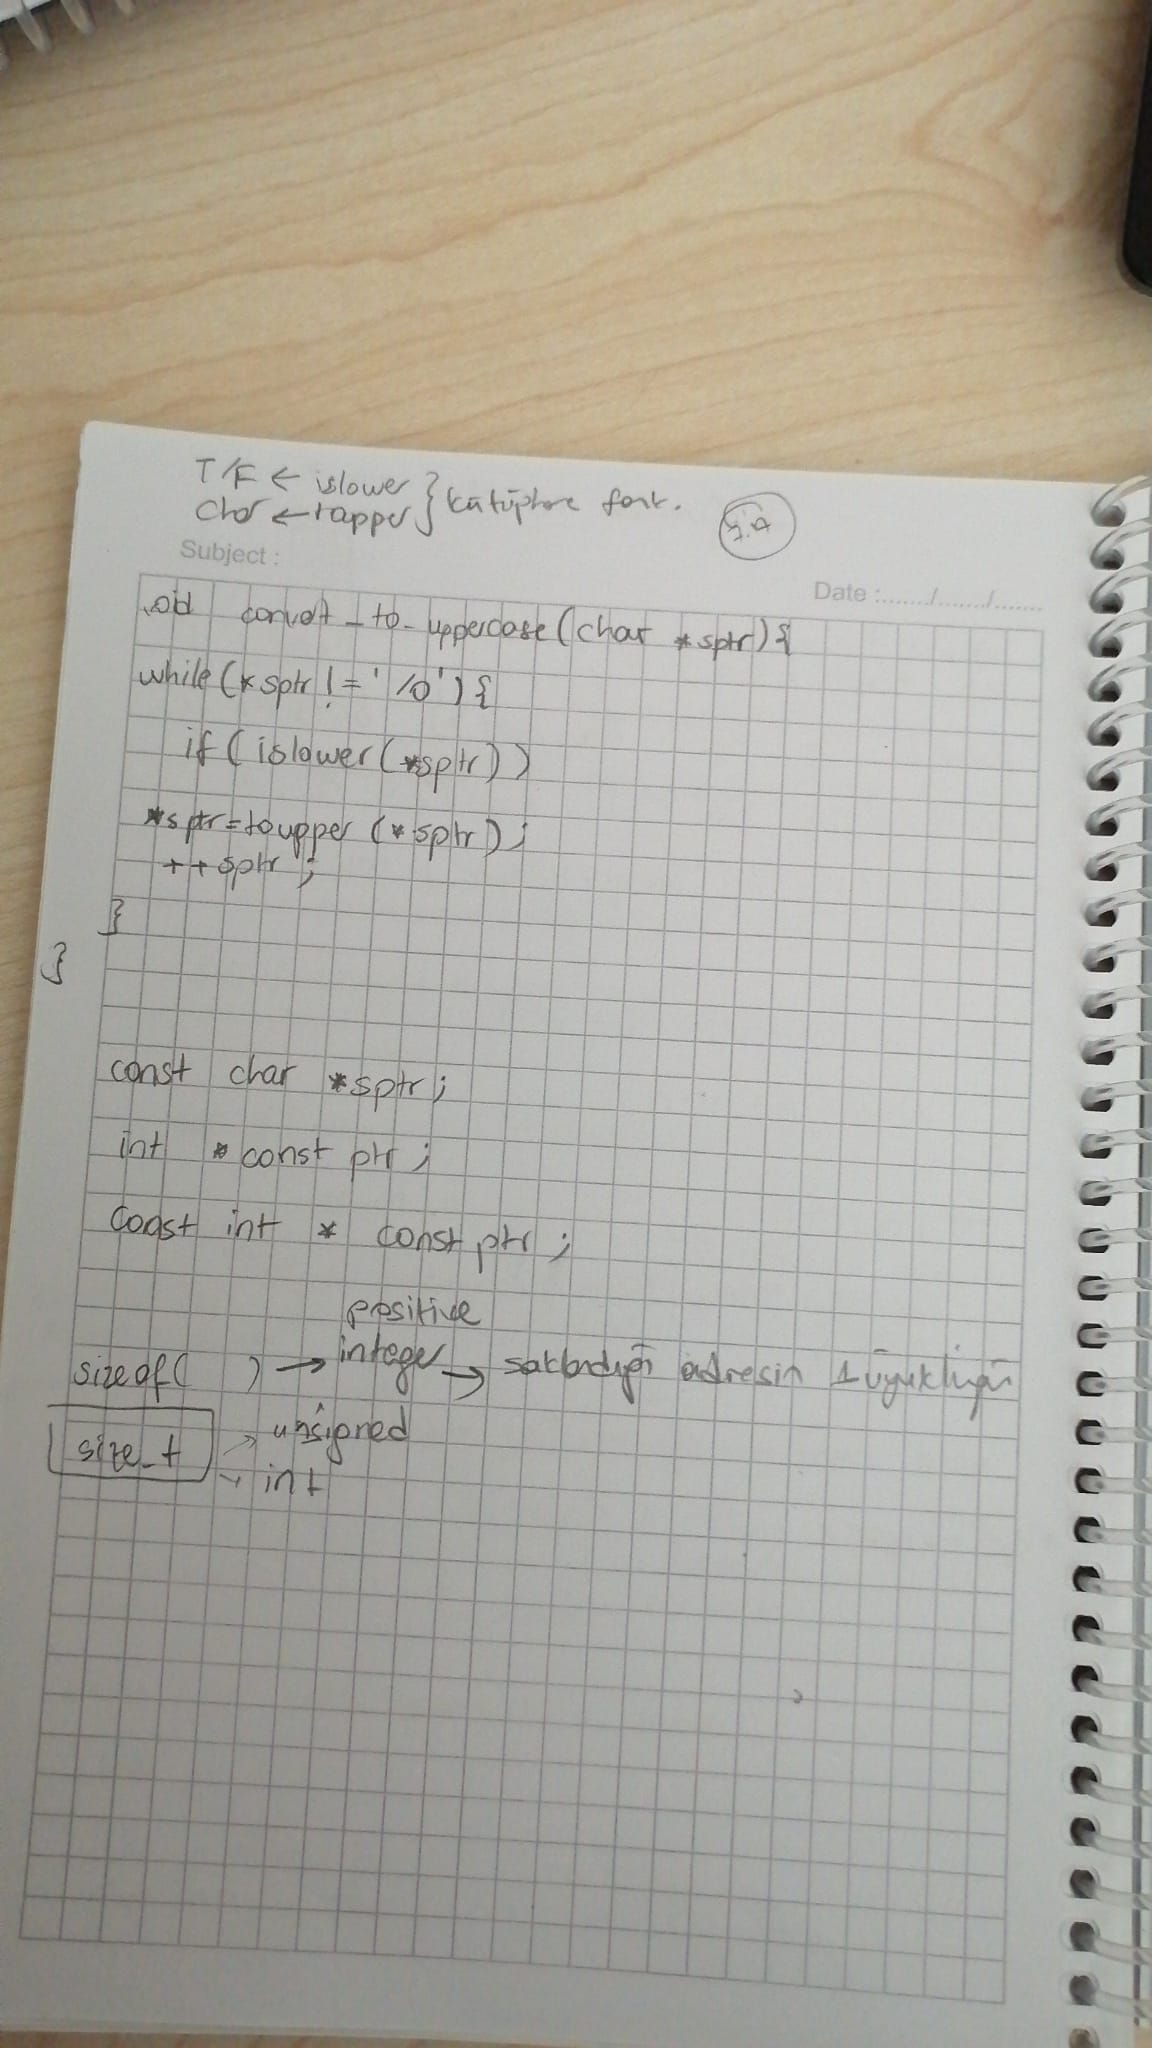 T/F ← islower } kütüphane fonk.
Char ← toupper
Subject :
Date :....../....../......
void convert_to_uppercase(char *sptr){
while(*sptr != '/0'){
if(islower(*sptr))
*sptr=toupper(*sptr);
++sptr;
}
}
const char *sptr;
int *const ptr;
const int * const ptr;
positive
sizeof( ) → integer → sakladığı adresin büyüklüğü
size_t → unsigned
→ int